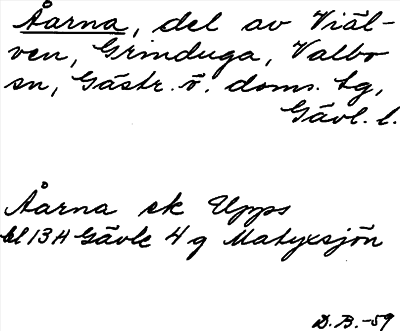 Åarna, del av Viäl-
ven, Grinduga, Valbo
sn, Gästr. ö. doms. tg,
Gävl. l.
Åarna sk Upps
bl 13 H Gävle 4 g Matyxsjön
D. B. -59